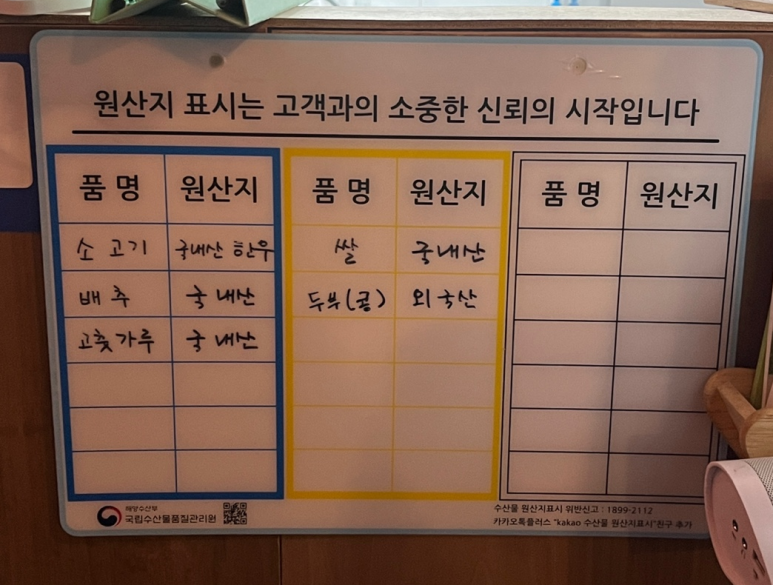 원산지 표시는 고객과의 소중한 신뢰의 시작입니다
품명 원산지 품명 원산지 품명 원산지
소고기 국내산 한우 쌀 국내산
배추 국내산 두부(콩) 외국산
고춧가루 국내산
해양수산부
국립수산물품질관리원
수산물 원산지표시 위반신고 : 1899-2112
카카오톡플러스 "kakao 수산물 원산지표시"친구 추가